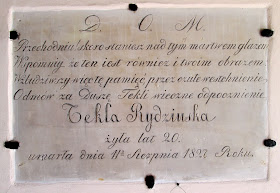 D. O. M.
Przechodniu, skoro staniesz nad tym martwem głazem
Wspomniy, że ten iest rownież i twoim obrazem.
Wzbudziwszy więc tę pamięć przez czułe westchnienie
Odmow za Duszę Tekli wieczne odpocznienie.
Tekla Rydzińska
żyła lat 20.
umarła dnia 11go Sierpnia 1827 Roku.